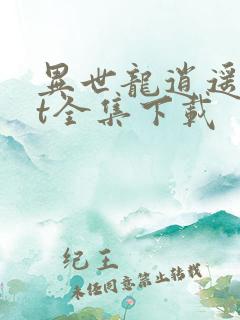 異世龍逍遥
t全集下載
纪王
未任同意禁止轉載